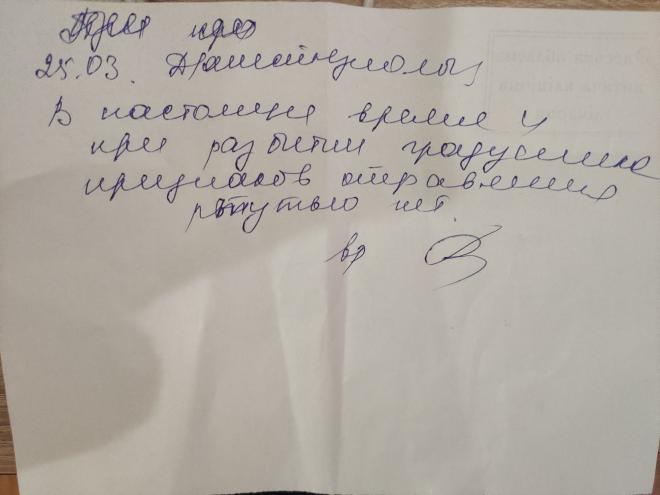 25.03.
В настоящее время и
при разбитии градусника
признаков отравления
ртутью нет.
вр